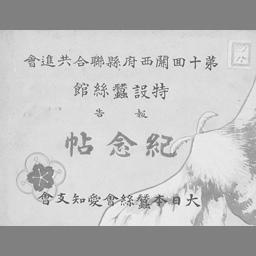 第十回關西府縣聯合共進會
特設蠶絲館
報告
紀念帖
大日本蠶絲會愛知支會